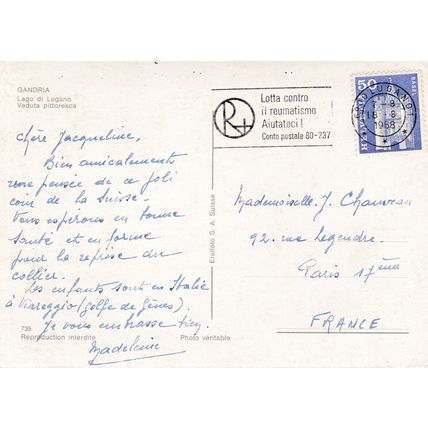 GANDRIA
Lago di Lugano
Veduta pittoresca
Chère Jacqueline,
Bien amicalement
une pensée de ce joli
coin de la Suisse.
Vous espérons en bonne
santé et en forme
pour la reprise du
collier.
Les enfants sont en Italie
à Viareggio (golfe de Gênes).
Je vous embrasse bien
Madeleine
735
Reproduction interdite
Photo véritable
Erafoto S. A. Suisse
R+
Lotta contro
il reumatismo
Aiutateci !
Conto postale 80-237
LUGANO 1
18 - 8
1968
50
BASEL
HELVETIA
Mademoiselle J. Chauveau
92. rue Legendre.
Paris 17ème
FRANCE